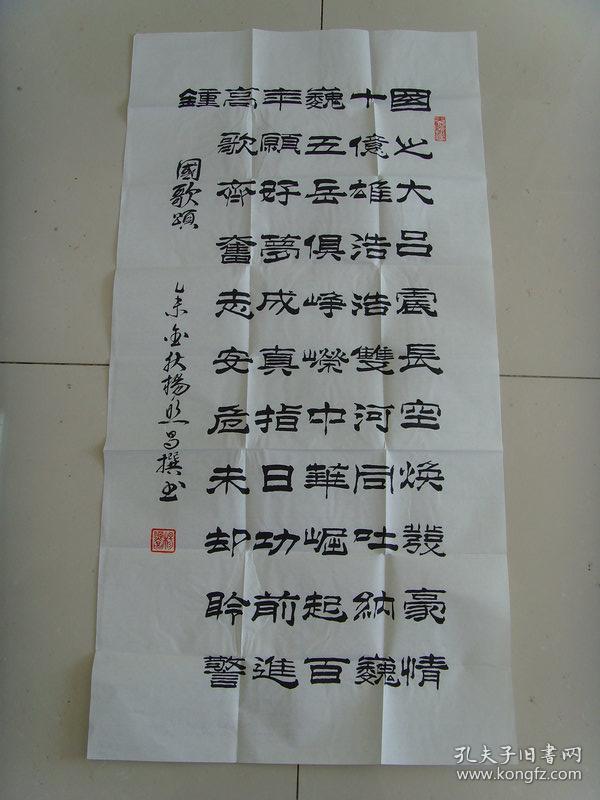 國之大呂震長空煥發豪情
十億雄浩浩雙河同吐納巍
巍五岳俱崢嶸中華崛起百
年願好夢成真指日功前進
高歌齊奮志安危未却聆警
鍾
國歌頌
乙未金秋楊 昌撰书
孔夫子旧书网
www.kongfz.com